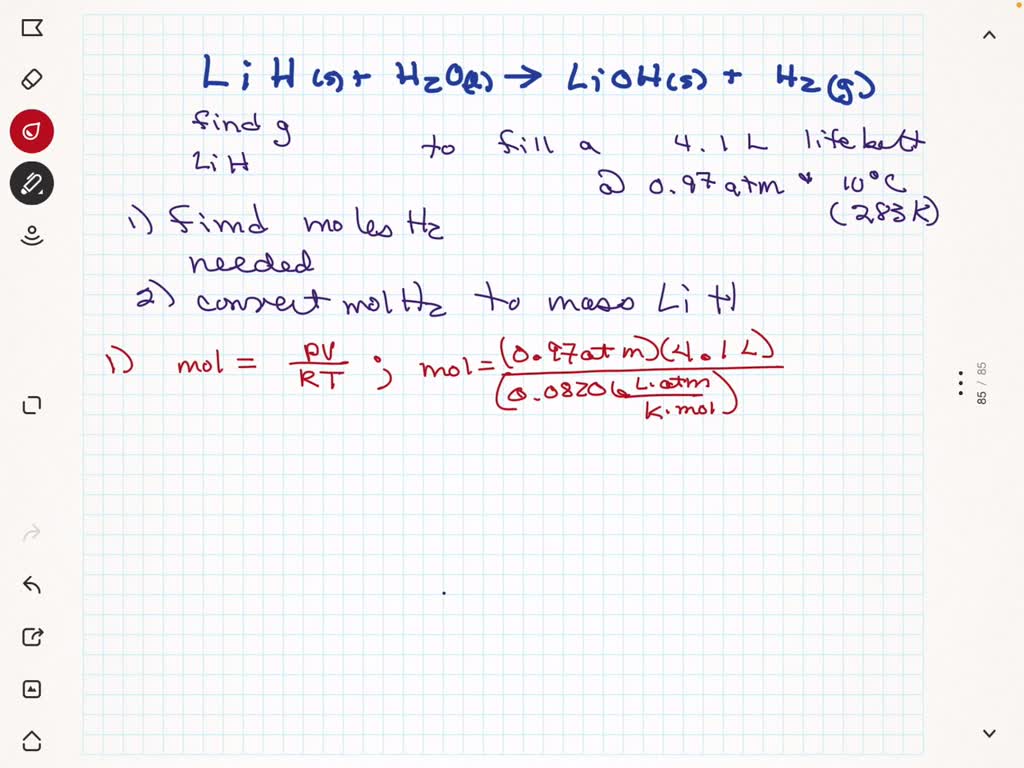 LiH(s) + H2O(l) → LiOH(s) + H2(g)
find g
LiH
to fill a 4.1 L lifebelt
@ 0.97 atm + 10°C
(283K)
1) find moles H2
needed
2) convert mol H2 to mass LiH
1) mol = PV/RT ; mol = (0.97 atm)(4.1 L)
(0.08206 L·atm/K·mol)
85 / 85